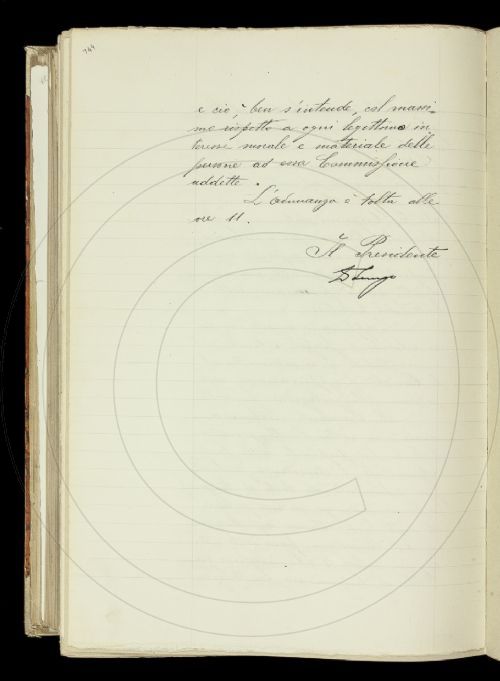 144
e ciò, ben s'intende, col massi=
mo rispetto a ogni legittimo in
teresse morale e materiale delle
persone ad essa Commissione
addette.
L'adunanza è tolta alle
ore 11.
Il Presidente